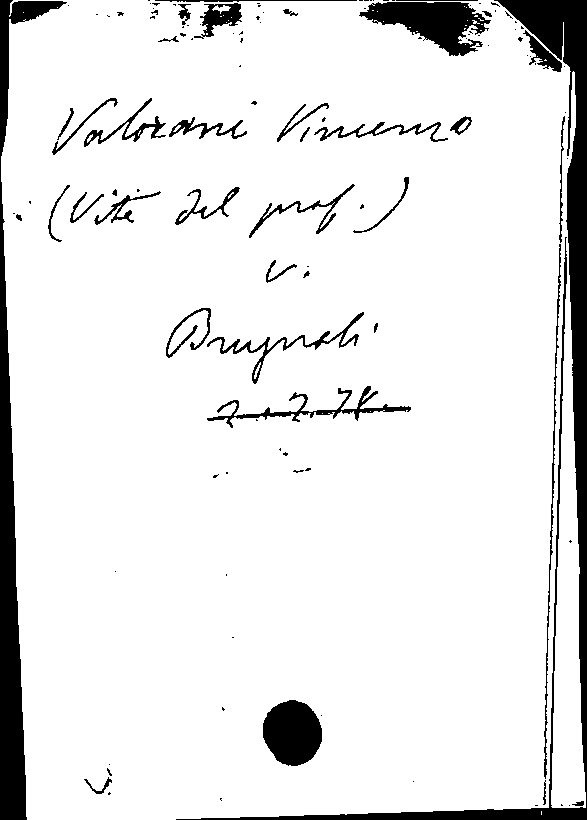 Valorani Vincenzo
(Vita del prof.)
v.
Brugnoli